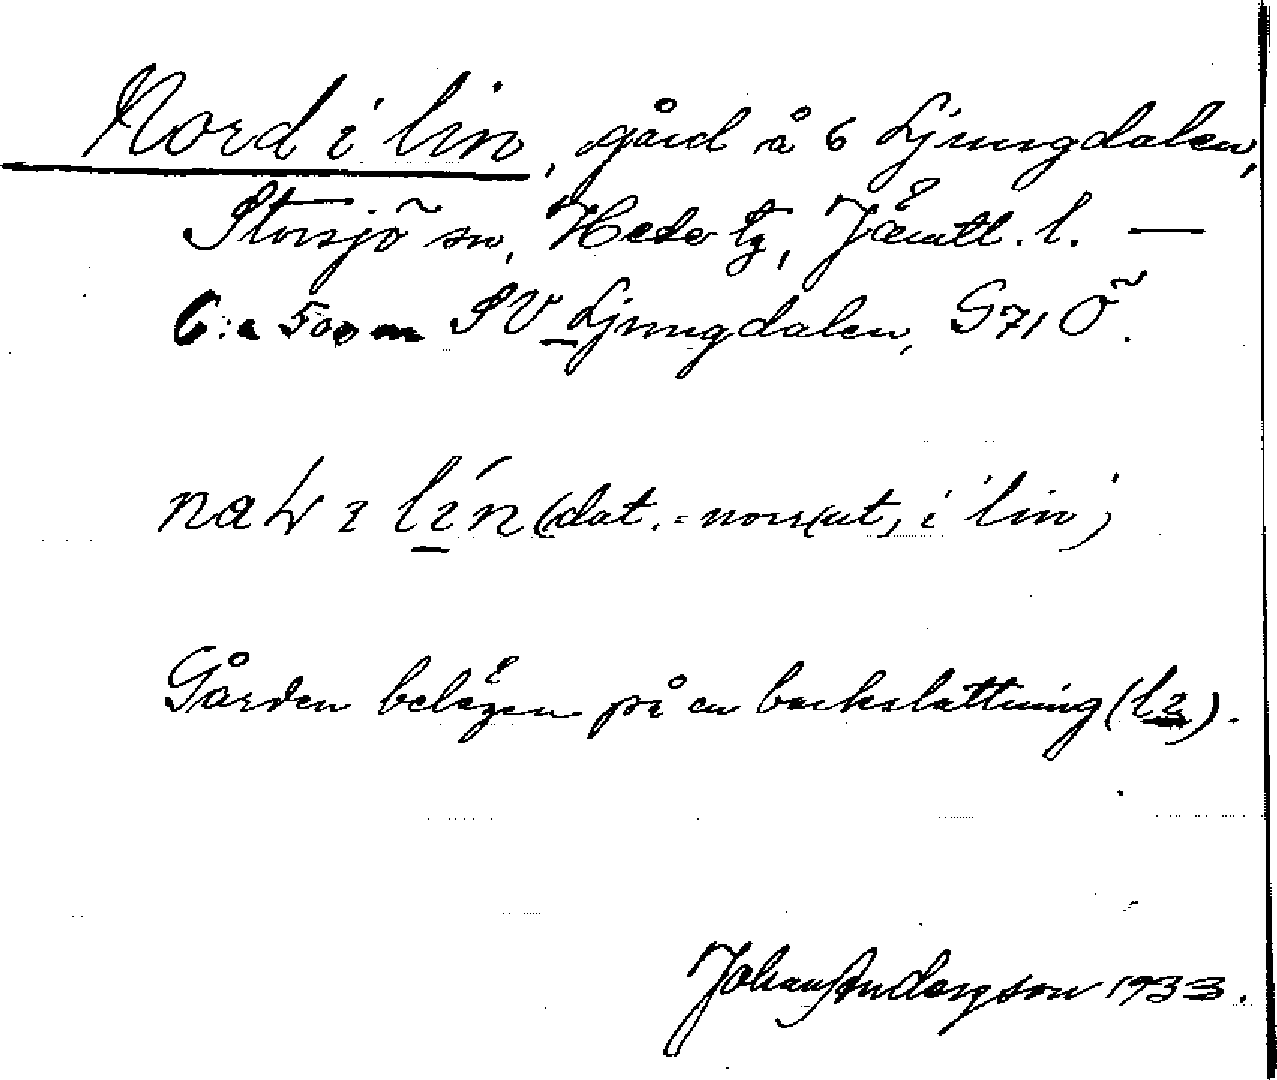 Nord i lin, gård å 6 Ljungdalen,
Storsjö sn, Hede tg, Jämtl. l. —
C:a 500 m SV Ljungdalen, G71Ö.
(dat. = norr(ut) i 'lin')
Gården belägen på en backslattning (
Johan Anderson 1933.